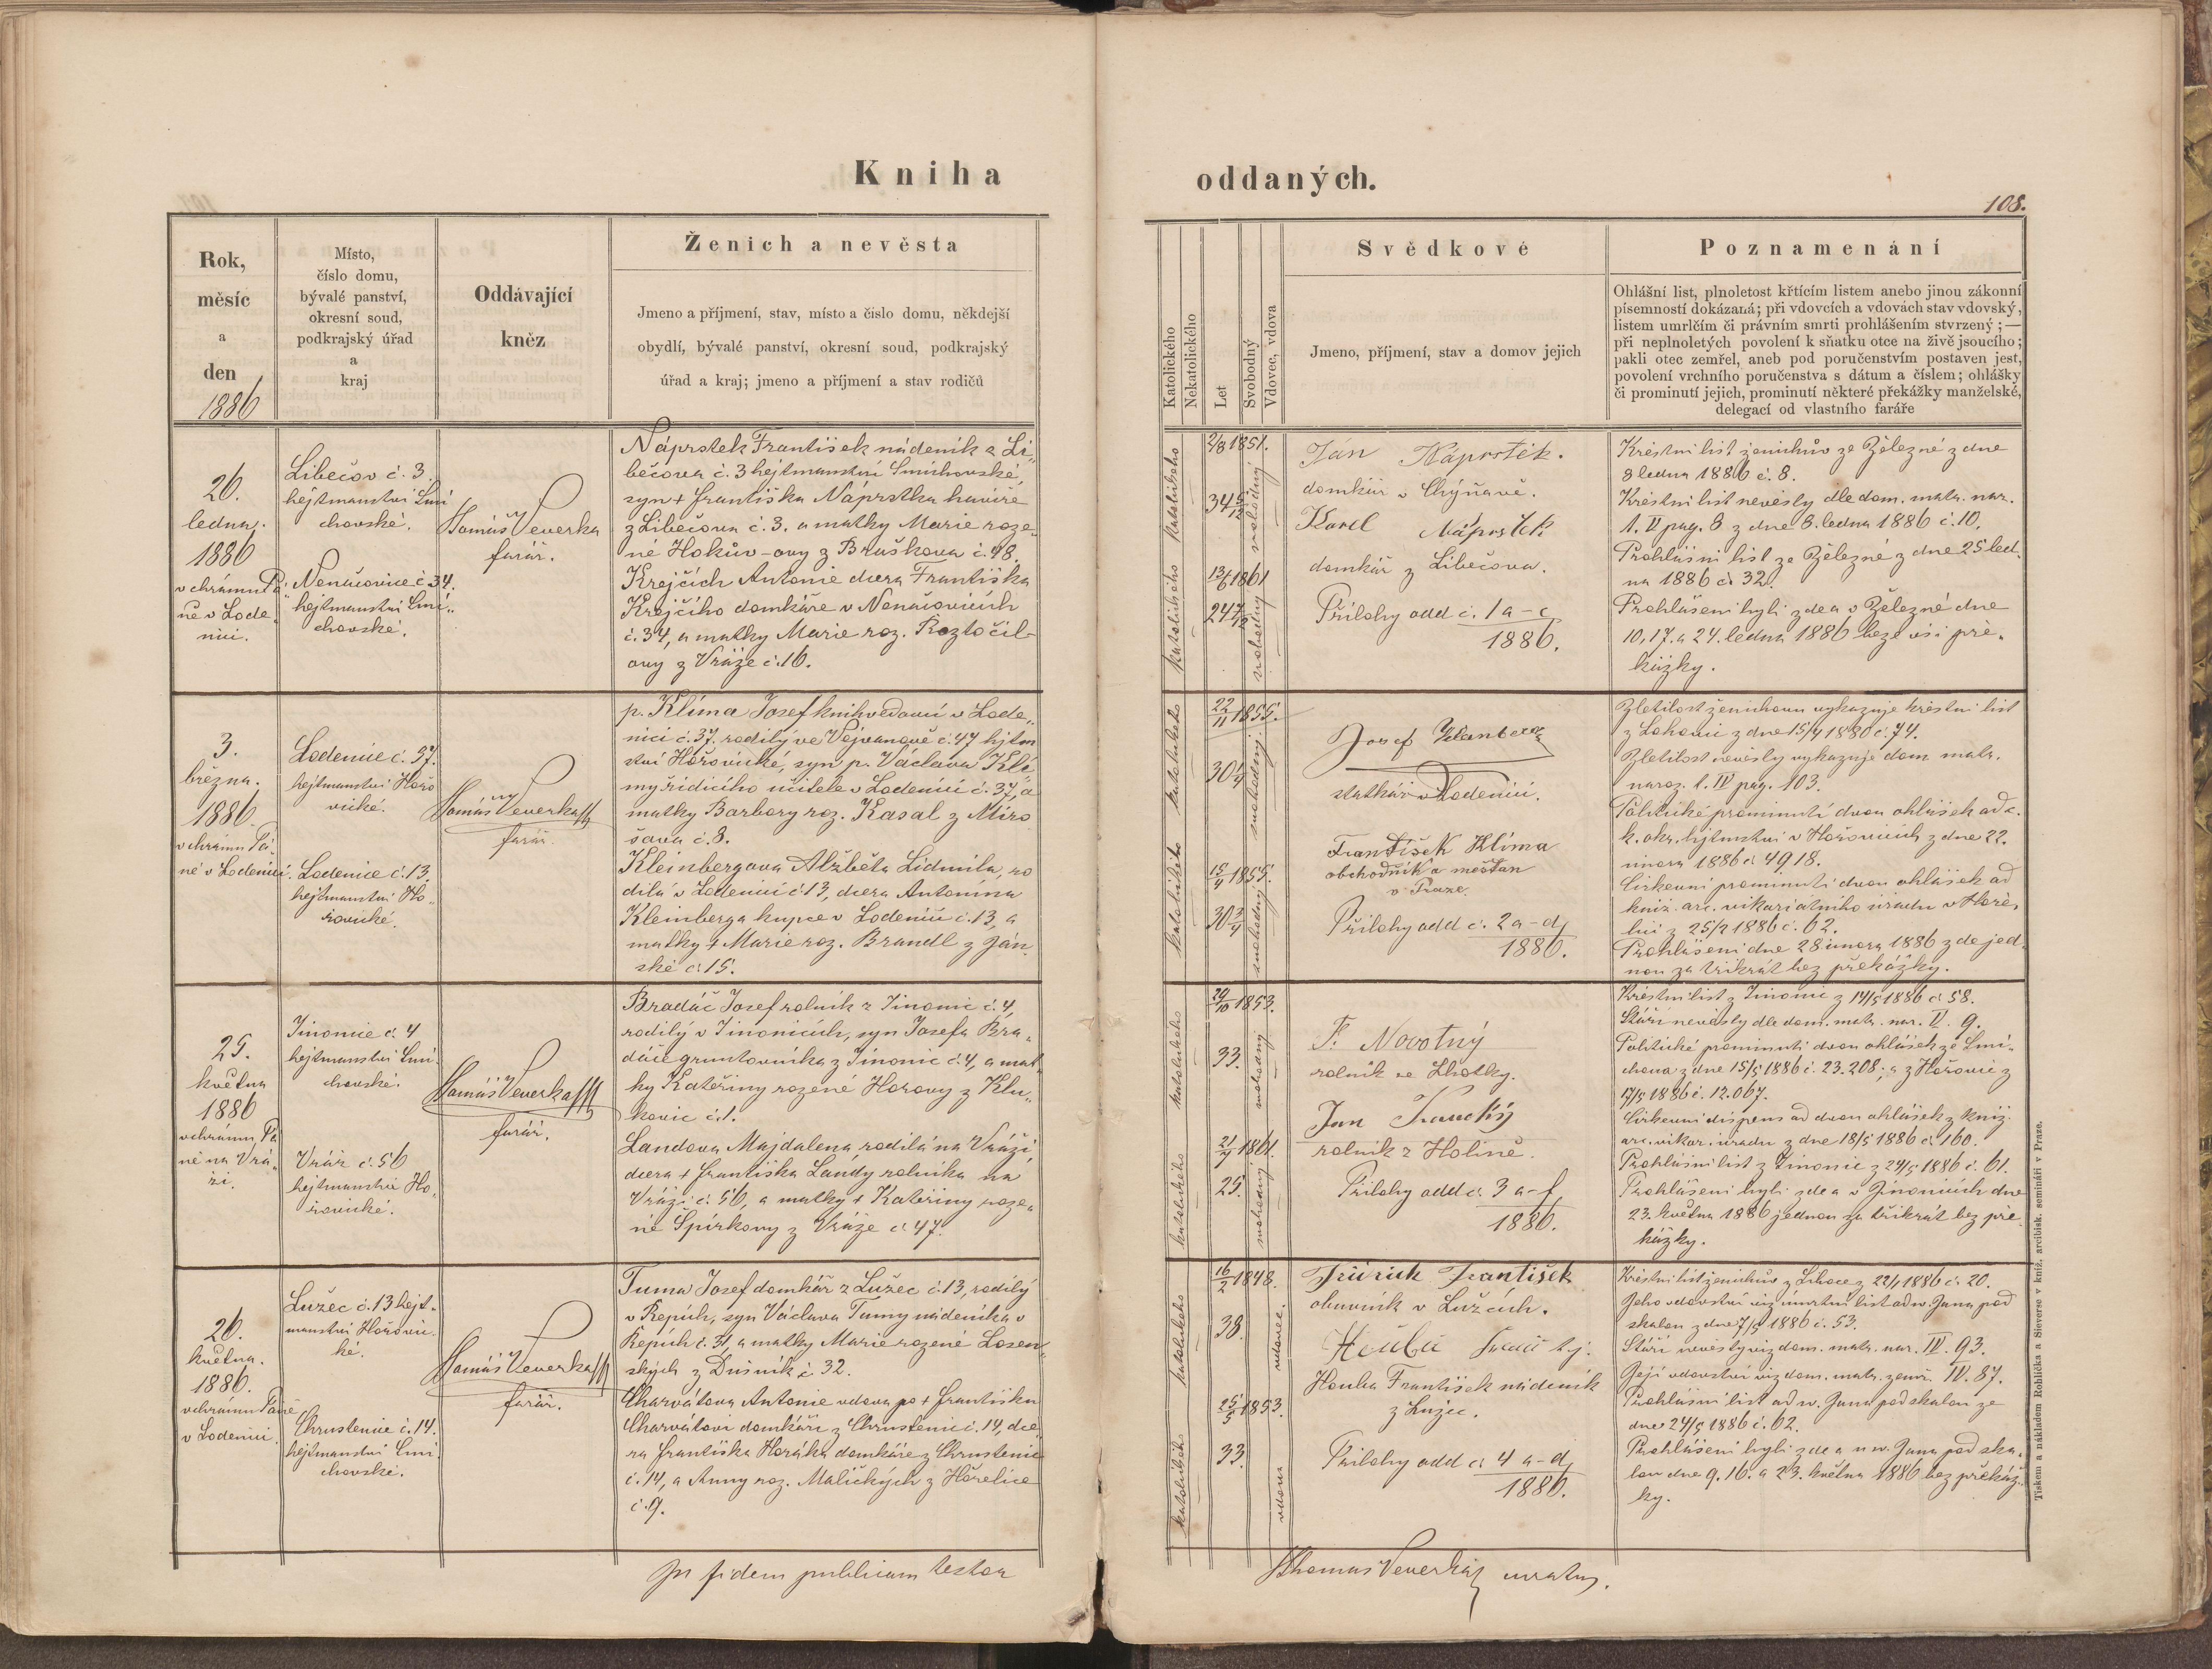 Kniha oddaných.
108.
Rok,
měsíc
a
den
1886
Místo,
číslo domu,
bývalé panství,
okresní soud,
podkrajský úřad
a
kraj
Oddávající
kněz
Ženich a nevěsta
Jmeno a příjmení, stav, místo a čislo domu, někdejší
obydlí, bývalé panství, okresní soud, podkrajský
úřad a kraj; jmeno a příjmení a stav rodičů
Katolického
Nekatolického
Let
Svobodný
Vdovec, vdova
Svědkové
Jmeno, příjmení, stav a domov jejich
Poznamenání
Ohlášní list, plnoletost křtícím listem anebo jinou zákonní
písemností dokázaná; při vdovcích a vdovách stav vdovský,
listem umrlčím či právním smrti prohlášením stvrzený; —
při neplnoletých povolení k sňatku otce na živě jsoucího;
pakli otec zemřel, aneb pod poručenstvím postaven jest,
povolení vrchního poručenstva s dátum a číslem; ohlášky
či prominutí jejich, prominutí některé překážky manželské,
delegací od vlastního faráře
26.
ledna.
1886
v chrámu Pá-
ně v Lode-
nici.
Libečov č. 3.
hejtmanství Smí
chovské.
Nenačovice č 34.
hejtmanství Smí-
chovské.
Tomáš Veverka
farář.
Náprstek František nádeník z Li-
bečova č. 3 hejtmanství Smíchovské,
syn + Františka Náprstka havíře
z Libečova č. 3. a matky Marie roze-
né Hokův-ovy z Bruškova č. 48.
Krejčích Antonie dcera Františka
Krejčího domkáře v Nenačovicích
č. 34, a matky Marie roz. Roztočil-
ovy z Vráže č. 16.
katolického
katolického
2/8 1851.
34 5/12
svobodný
13/6 1861
24 7/12
svobodný
Ján Náprstek.
domkář v Chýňavě.
Karel Náprstek
domkář z Libečova.
Přílohy odd č. 1 a-c
1886.
Křestní list ženichův ze Železné z dne
8 ledna 1886 č. 8.
Křestní list nevěsty dle dom. matr. nar.
1. V pag. 8 z dne 8. ledna 1886 č. 10.
Prohlášní list ze Železné z dne 25 led-
na 1886 č 32.
Prohlášeni byli zde a v Železné dne
10, 17. a 24. ledna 1886 beze vší pře-
kážky.
3.
března.
1886.
v chrámu Pá-
ně v Lodenici.
Lodenice č. 37.
hejtmanství Hořo
vické.
Lodenice č. 13.
hejtmanství Ho-
řovické.
Tomáš Veverka
farář.
p. Klíma Josef knihvedoucí v Lode-
nici č. 37. rodilý ve Vejvanově č. 47 hejtm
ství Hořovické, syn p. Václava Klí
my řídícího učitele v Lodenici č. 37, a
matky Barbory roz. Kasal z Miro
šova č. 8.
Kleinbergova Alžběta Lidmila, ro
dilá v Lodenici č 13, dcera Antonína
Kleinberga kupce v Lodenici č. 13, a
matky + Marie roz. Brandl z Ján-
ské č. 15.
katolického
katolického
22/11 1855.
30 1/4
svobodný
15/4 1855.
30 3/4
svobodný
Josef
statkář v Lodenici.
František Klíma
obchodník a měšťan
v Praze.
Přílohy odd č. 2 a-d,
1886.
Zletilost ženichovu vykazuje křestní list
z dne 15/4 1880 č. 74.
Zletilost nevěsty vykazuje dom matr.
naroz. 1. IV pag. 103.
Politické prominutí dvou ohlášek od c.
k. okr. hejtmství v Hořovicích z dne 22.
února 1886 č 4918.
Církevní prominutí dvou ohlášek od
kníž. arc. vikariatního úřadu v Hoře-
lici z 25/2 1886 č. 62.
Prohlášeni dne 28 února 1886 zde jed-
nou za třikrát bez překážky.
25.
května
1886
v chrámu Pá
ně na Vrá-
ži.
Jinonice č. 4
hejtmanství Smí-
chovské.
Vráž č. 56
hejtmanství Ho-
řovické.
Tomáš Veverka
farář.
Bradáč Josef rolník z Jinonic č. 4,
rodilý v Jinonicích, syn Josefa Bra-
dáče gruntovníka z Jinonic č. 4, a mat-
ky Kateřiny rozené Horovy z Klu-
kovic č. 1.
Landova Majdalena rodilá na Vráži,
dcera + Františka Landy rolníka na
Vráži č. 56, a matky + Kateřiny roze-
né Špírkovy z Vráže č 47.
katolického
katolického
29/10 1853.
33.
svobodný
21/7 1861.
25.
svobodný
F. Novotný
rolník ze Lhotky.
Jan
rolník z Holině.
Přílohy odd č. 3 a-f,
1886.
Křestní list z Jinonic z 14/5 1886 č 58.
Stáří nevěsty dle dom. matr. nar. V. 9.
Politické prominutí dvou ohlášek ze Smí-
chova z dne 15/5 1886 č. 23.208; a z Hořovic z
17/5 1886 č. 12.067.
Církevní dispens od dvou ohlášek z kníž.
arc. vikar. úradu z dne 18/5 1886 č 160.
Prohlášní list z Jinonic z 24/5 1886 č. 61.
Prohlášeni byli zde a v Jinonicích dne
23. května 1886 jednou za třikrát bez pře-
kážky.
26.
května.
1886.
v chrámu Páně
v Lodenici
Lužec č. 13 hejt-
manství Hořovic-
ké.
Chrustenice č. 14.
hejtmanství Smí-
chovské.
Tomáš Veverka
farář.
Tuma Josef domkář z Lužec č. 13, rodilý
v Řepích, syn Václava Tumy nádeníka v
Řepích č. 31, a matky Marie rozené Losen-
ských z Dušník č 32.
Charvátova Antonie vdova po + Františku
Charvátovi domkáři z Chrustenic č. 14, dce-
ra Františka Horáka domkáře z Chrustenic
č. 14, a Anny roz. Maličkých z Hořelice
č. 9.
katolického
katolického
16/2 1848.
38.
vdovec.
25/5 1853.
33.
vdova
František
obuvník v Lužcích.
Houba
Houba František nádeník
z Lužec.
Přílohy odd č 4 a-d,
1886.
Křestní list ženichův z 22/1 1886 č. 20.
Jeho vdovství viz úmrtní list od sv. Jana pod
skalou z dne 7/5 1886 č. 53.
Stáří nevěsty viz dom. matr. nar. IV. 93.
Její vdovství viz dom. matr. zemř. IV. 87.
Prohlášní list od sv. Jana pod skalou ze
dne 24/5 1886 č. 62.
Prohlášeni byli zde a u sv. Jana pod ska-
lou dne 9. 16. a 23. května 1886 bez překáž-
ky.
In fidem publicam testor
Thomas Veverka curatus.
Tiskem a nákladem Rohlíčka a Sieverse v kníž. arcibisk. semináři v Praze.